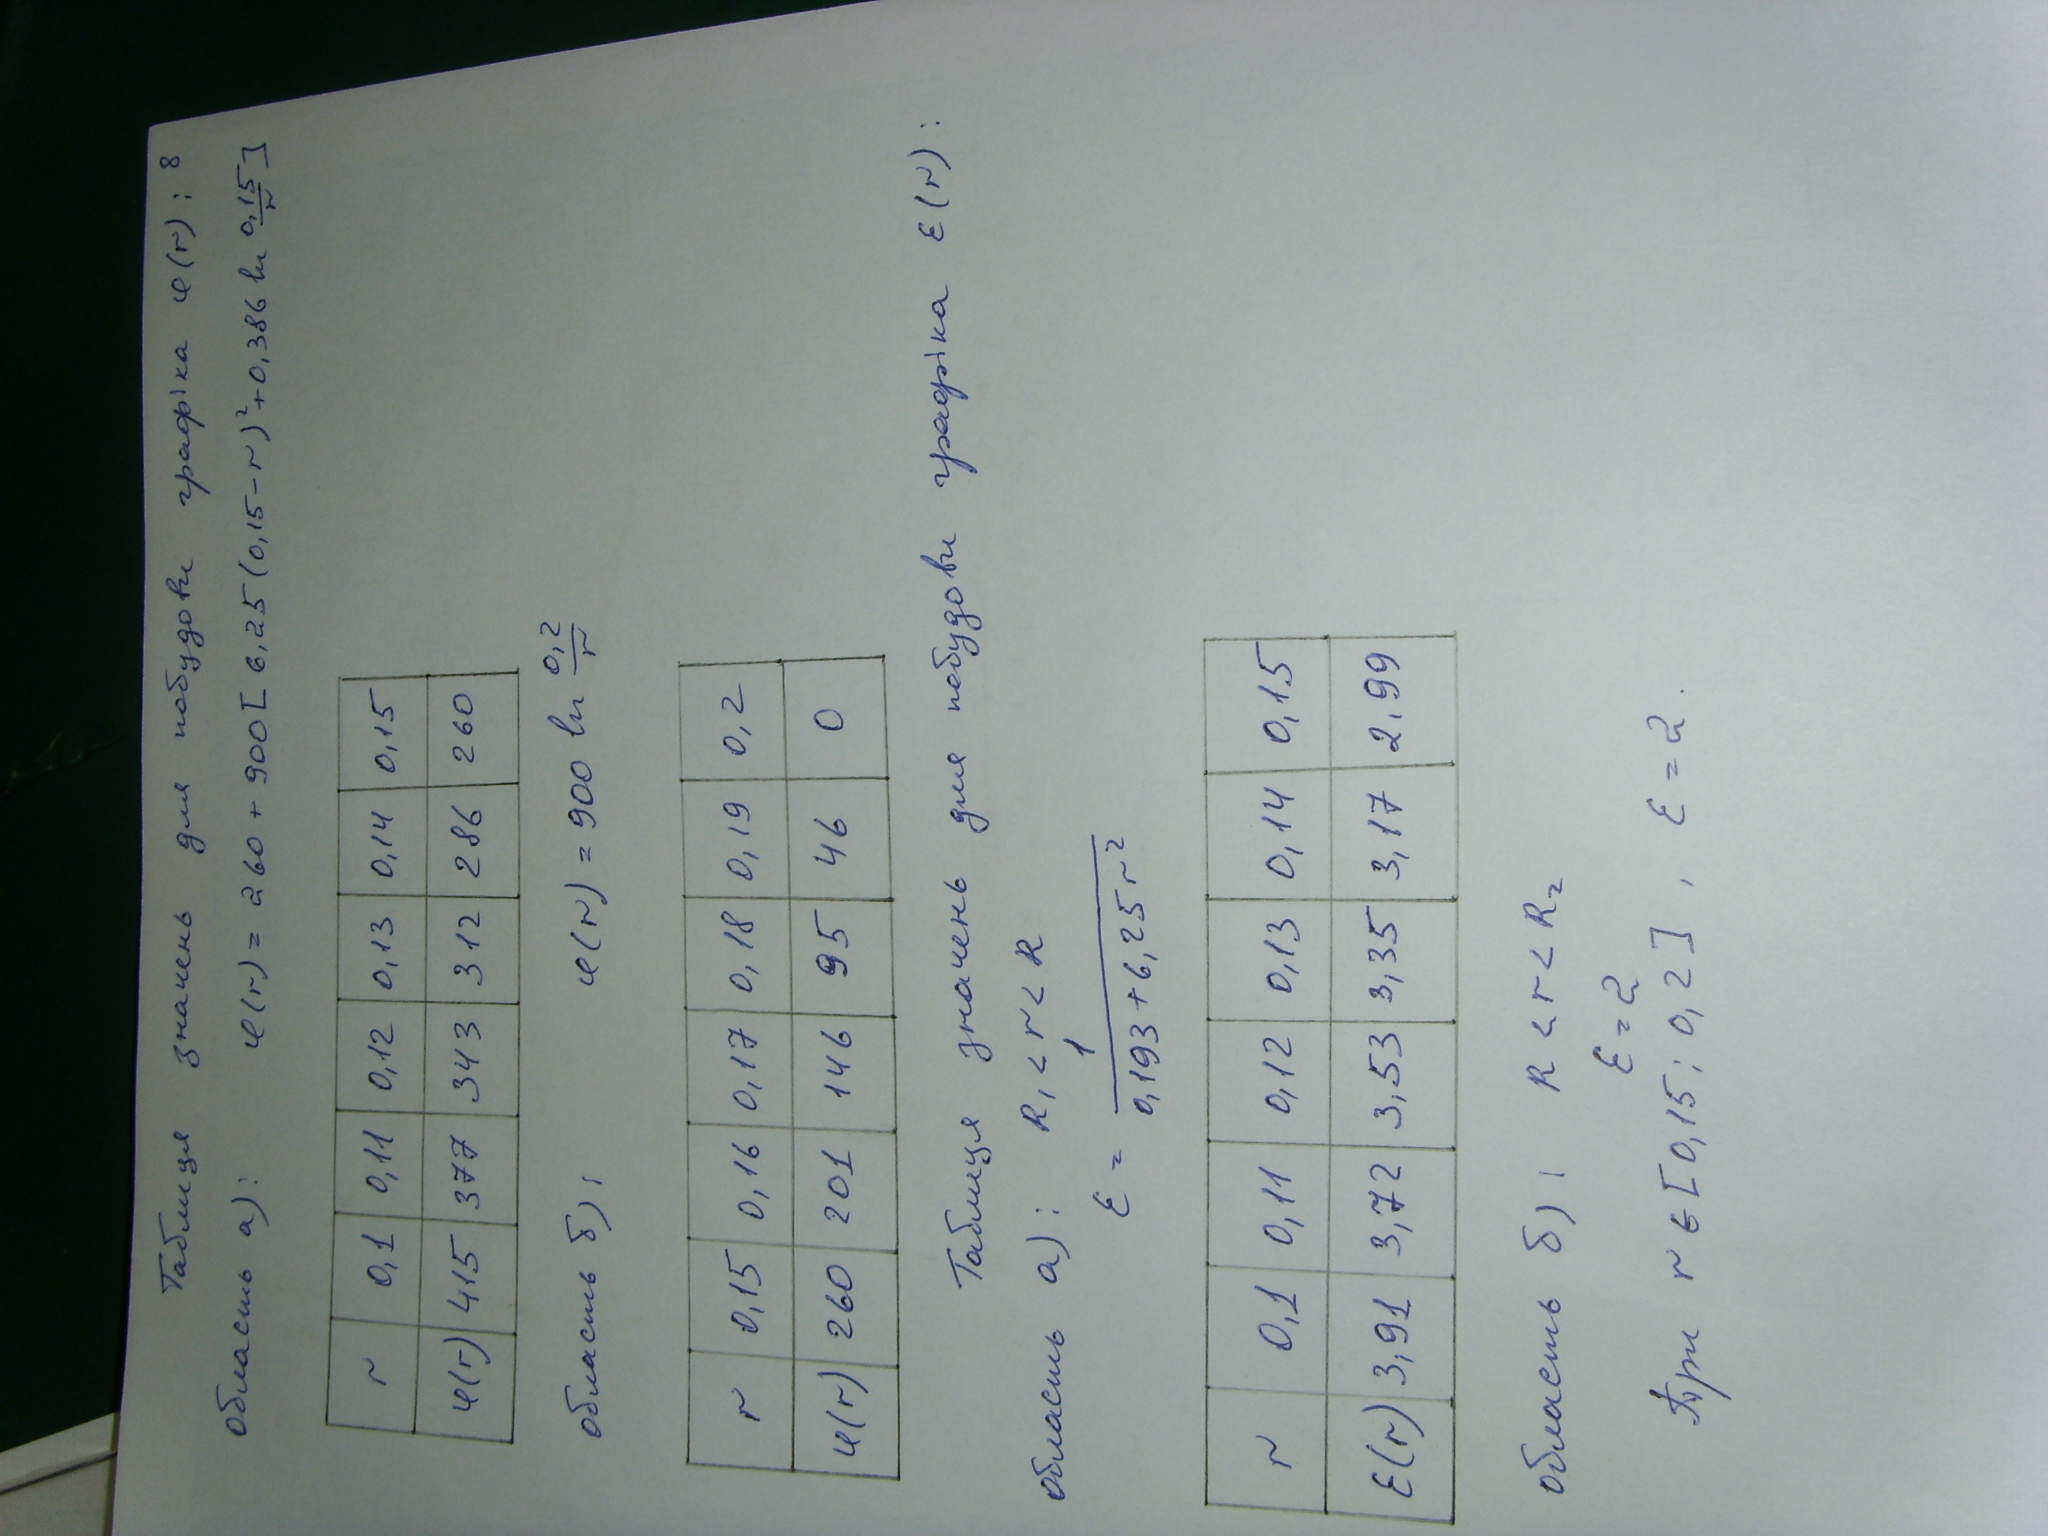 8
Таблиця значень для побудови графіка φ(r):
Область а): φ(r) = 260 + 900[6,25(0,15-r)² + 0,386 ln 0,15/r]
r 0,1 0,11 0,12 0,13 0,14 0,15
φ(r) 415 377 343 312 286 260
Область б): φ(r) = 900 ln 0,2/r
r 0,15 0,16 0,17 0,18 0,19 0,2
φ(r) 260 201 146 95 46 0
Таблиця значень для побудови графіка ε(r):
Область а): R₁ < r < R
ε = 1/(0,193 + 6,25r²)
r 0,1 0,11 0,12 0,13 0,14 0,15
ε(r) 3,91 3,72 3,53 3,35 3,17 2,99
Область б): R < r < R₂
ε = 2
При r ∈ [0,15; 0,2], ε = 2.